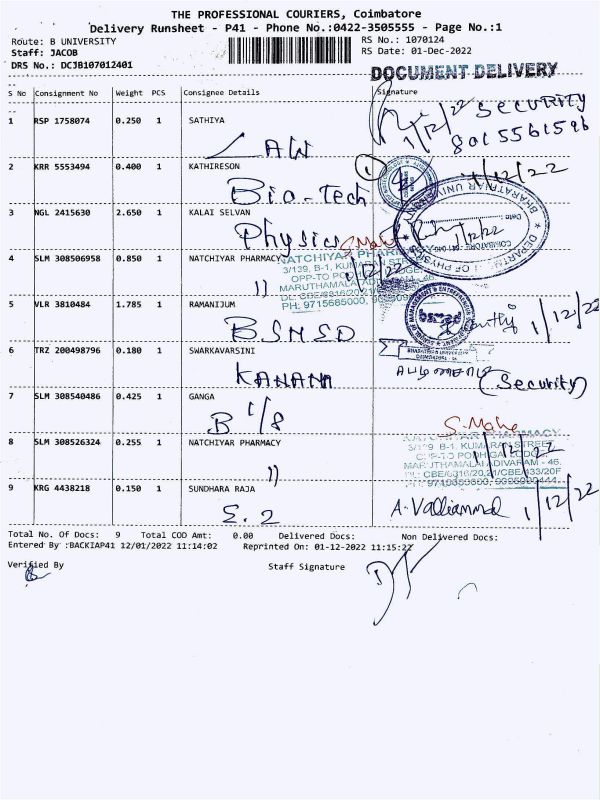 THE PROFESSIONAL COURIERS, Coimbatore
Delivery Runsheet - P41 - Phone No.:0422-3505555 - Page No.:1
Route: B UNIVERSITY RS No.: 1070124
Staff: JACOB RS Date: 01-Dec-2022
DRS No.: DCJB107012401
DOCUMENT DELIVERY
S No Consignment No Weight PCS Consignee Details Signature
1 RSP 1758074 0.250 1 SATHIYA 1/12/22 SECURITY
LAW 8015561596
2 KRR 5553494 0.400 1 KATHIRESON 1 1/12/22
Bio-Tech
3 NGL 2415630 2.650 1 KALAI SELVAN
Physics 1/12/22
★ DEPARTMENT OF PHYSICS ★ BHARATHIAR UNIVERSITY
COIMBATORE Date:
4 SLM 308506958 0.850 1 NATCHIYAR PHARMACY S.Mahe
NATCHIYAR PHARMACY
3/139, B-1, KUMARAN STREET
OPP-TO
MARUTHAMALAI ADIVARAM - 46
PH: 9715685000,
11 1/12/22
5 VLR 3810484 1.785 1 RAMANIJUM
BSMSD bsmed 1/12/22
6 TRZ 200498796 0.180 1 SWARKAVARSINI
KANANA (Security)
7 SLM 308540486 0.425 1 GANGA
B 1/8
8 SLM 308526324 0.255 1 NATCHIYAR PHARMACY S.Mahe
11 1/12/22
3/139 B-1, KUMARAN STREET
MARUTHAMALAI ADIVARAM - 46,
9 KRG 4438218 0.150 1 SUNDHARA RAJA
E.2 A.Valliammal 1/12/22
Total No. Of Docs: 9 Total COD Amt: 0.00 Delivered Docs: Non Delivered Docs:
Entered By :BACKIAP41 12/01/2022 11:14:02 Reprinted On: 01-12-2022 11:15:22
Verified By Staff Signature